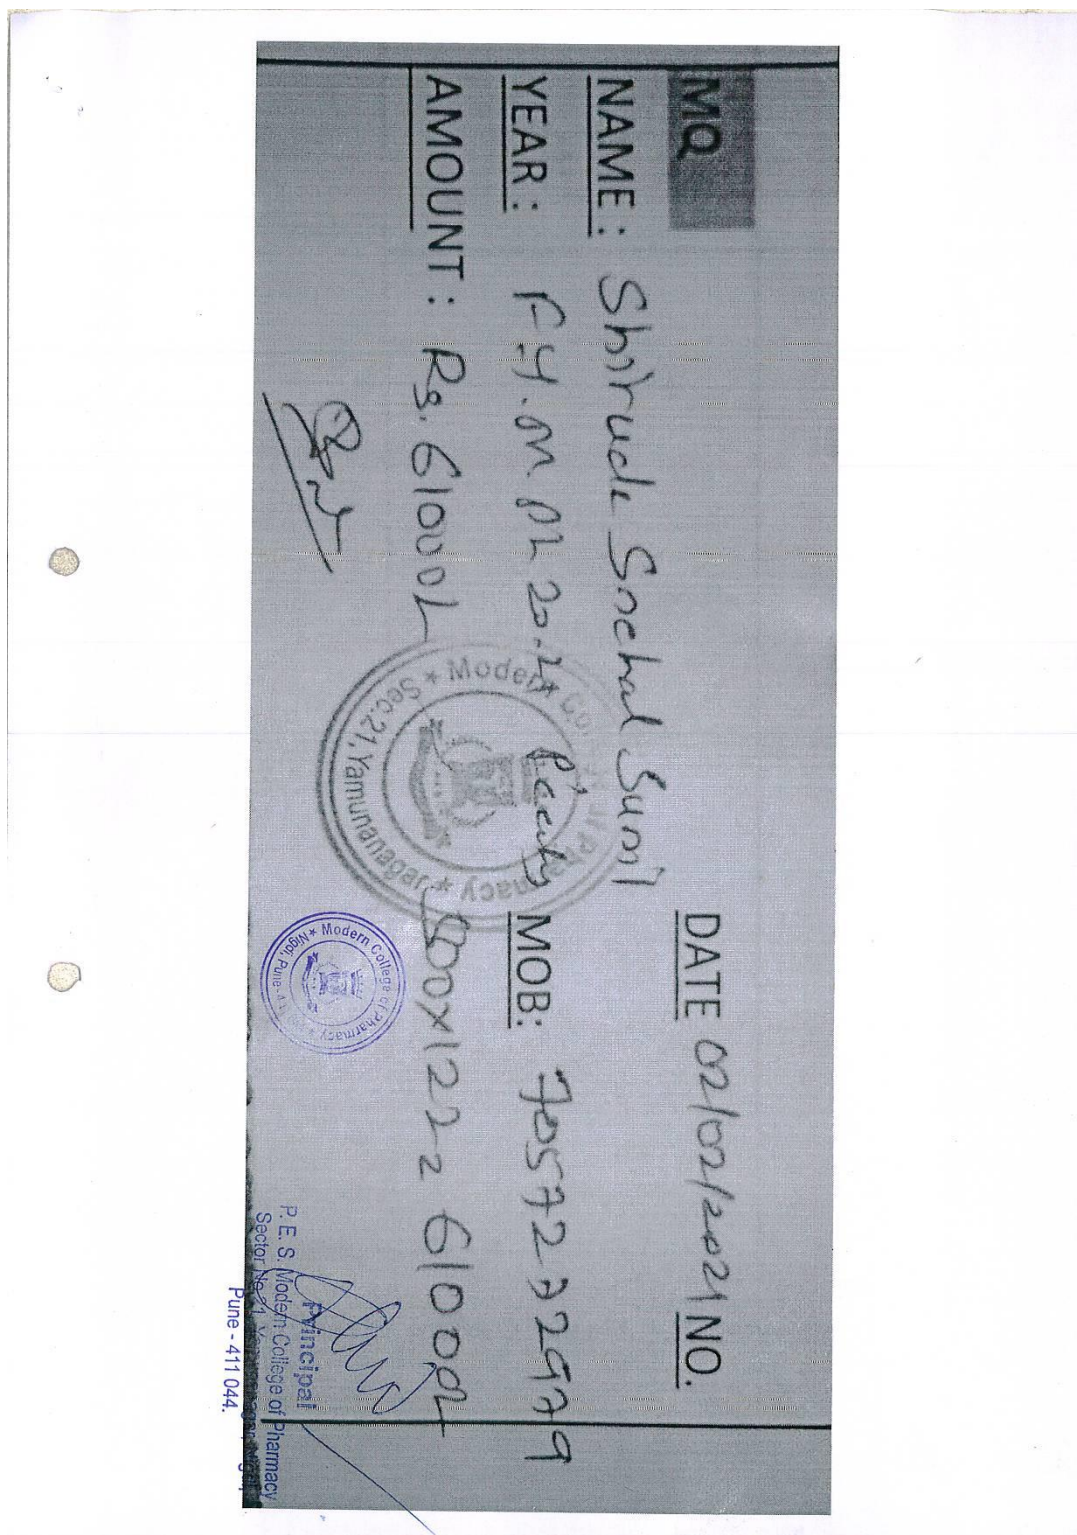 MQ DATE 02/02/2021 NO.
NAME : Shirude Snehal Sunil
YEAR : F.Y. M 20-21 MOB: 7057272979
AMOUNT : Rs. 61000/- 500x122= 61000/-
Modern Co. of Pharmacy
Sec.21, Yamunanagar
Modern College of Pharmacy
Nigdi, Pune-
Principal
P. E. S. Modern College of Pharmacy
Sector No. 21, Yamunanagar, Nigdi,
Pune - 411 044.